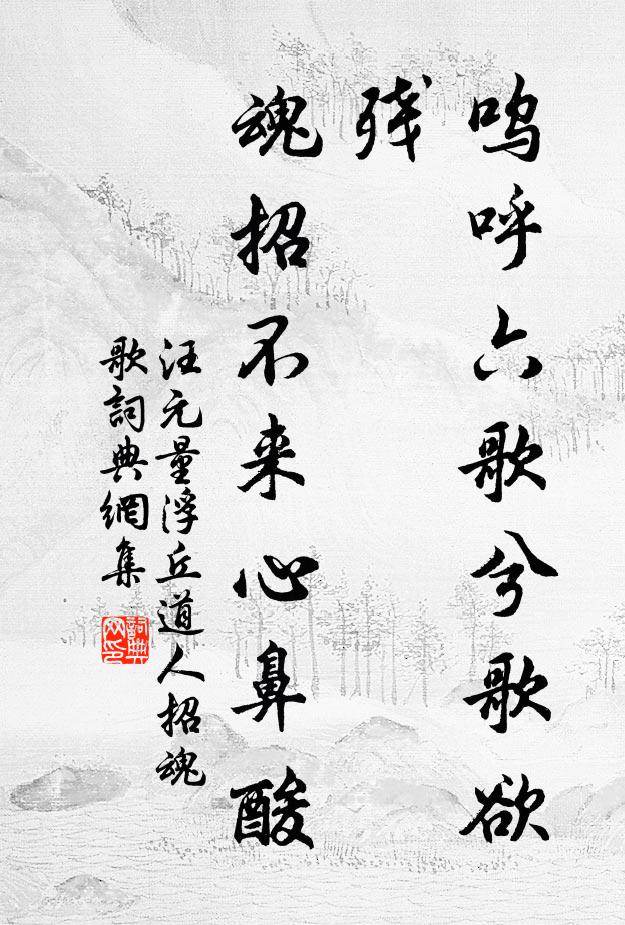 呜呼六歌兮歌欲
残
魂招不来心鼻酸
汪元量浮丘道人招魂
歌詞典網集
詞典
网印